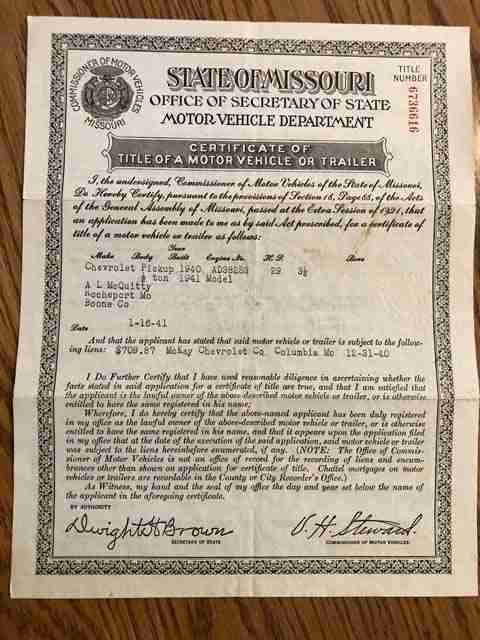 COMMISSIONER OF MOTOR VEHICLES
MISSOURI
STATE OF MISSOURI
OFFICE OF SECRETARY OF STATE
MOTOR VEHICLE DEPARTMENT
TITLE
NUMBER
6736616
CERTIFICATE OF
TITLE OF A MOTOR VEHICLE OR TRAILER
I, the undersigned, Commissioner of Motor Vehicles of the State of Missouri,
Do Hereby Certify, pursuant to the provisions of Section 18, Page 88, of the Acts
of the General Assembly of Missouri, passed at the Extra Session of 1921, that
an application has been made to me as by said Act prescribed, for a certificate of
title of a motor vehicle or trailer as follows:
Make Body Year Built Engine No. H.P. Bore
Chevrolet Pickup 1940 AD38283 29 3½
½ ton 1941 Model
A L McQuitty
Rocheport Mo
Boone Co
Date 1-16-41
And that the applicant has stated that said motor vehicle or trailer is subject to the follow-
ing liens: $709.87 McKay Chevrolet Co. Columbia Mo 12-31-40
I Do Further Certify that I have used reasonable diligence in ascertaining whether the
facts stated in said application for a certificate of title are true, and that I am satisfied that
the applicant is the lawful owner of the above-described motor vehicle or trailer, or is otherwise
entitled to have the same registered in his name.
Wherefore, I do hereby certify that the above-named applicant has been duly registered
in my office as the lawful owner of the above-described motor vehicle or trailer, or is otherwise
entitled to have the same registered in his name, and that it appears upon the application filed
in my office that at the date of the execution of the said application, said motor vehicle or trailer
was subject to the liens hereinbefore enumerated, if any. (NOTE: The Office of Commis-
sioner of Motor Vehicles is not an office of record for the recording of liens and encum-
brances other than shown on application for certificate of title. Chattel mortgages on motor
vehicles or trailers are recordable in the County or City Recorder's Office.)
As Witness, my hand and the seal of my office the day and year set below the name of
the applicant in the aforegoing certificate.
BY AUTHORITY
Dwight H Brown
SECRETARY OF STATE
V. H. Steward
COMMISSIONER OF MOTOR VEHICLES